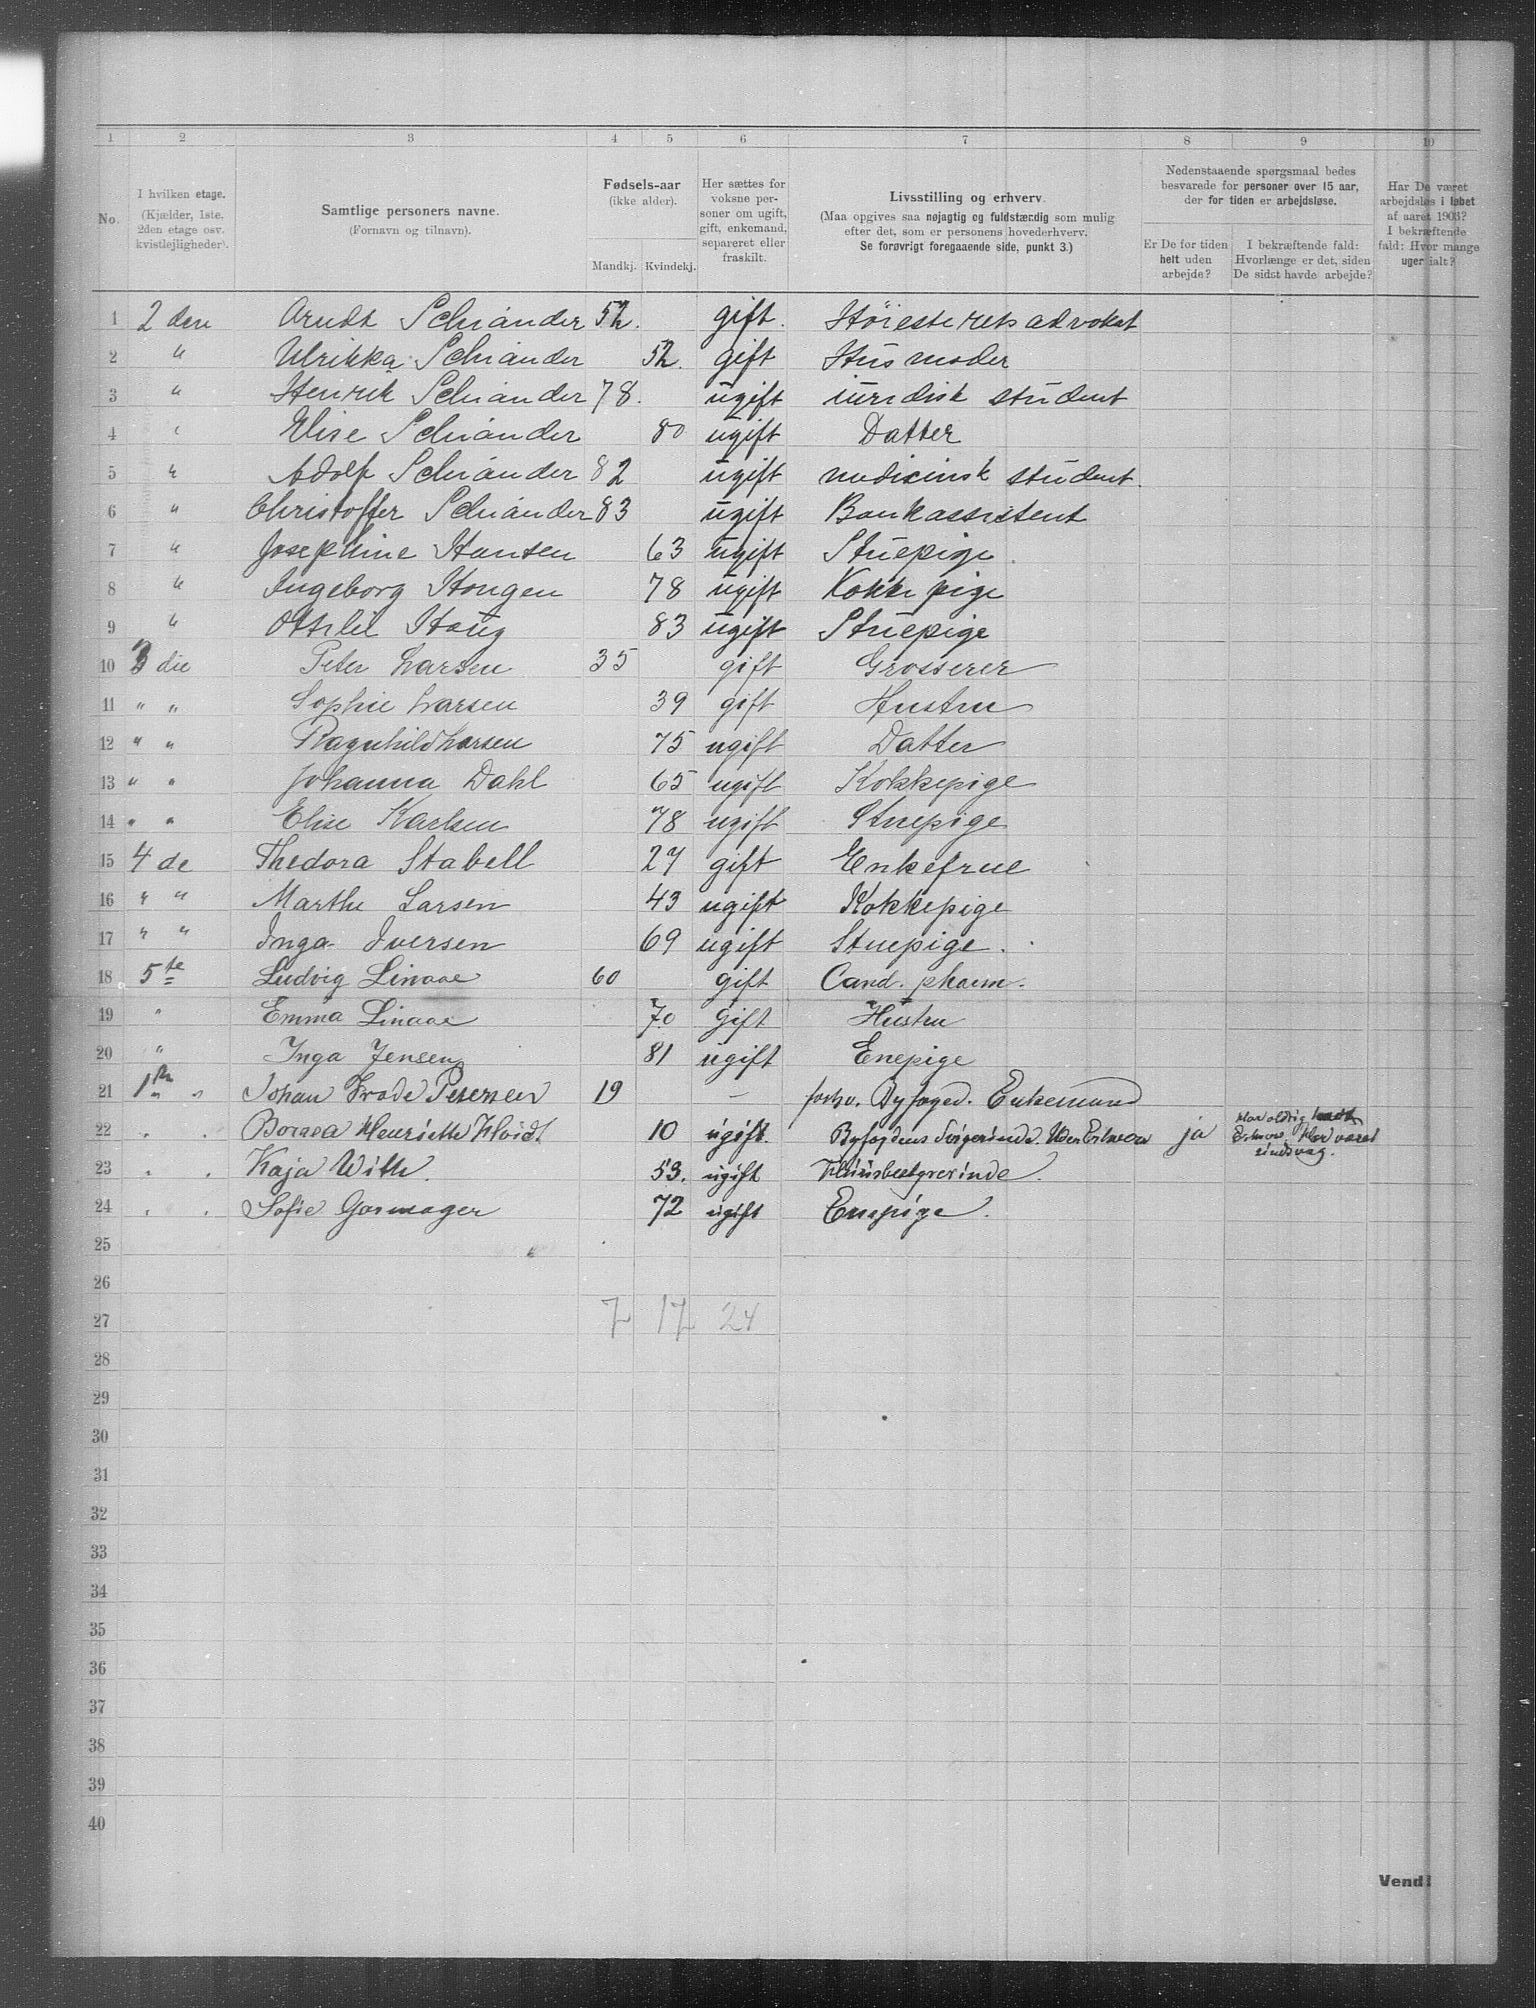 1 2 3 4 5 6 7 8 9 10
No.
I hvilken etage.
(Kjælder, 1ste,
2den etage osv.
kvistlejligheder).
Samtlige personers navne.
(Fornavn og tilnavn).
Fødsels-aar
(ikke alder).
Mandkj. Kvindekj.
Her sættes for
voksne per-
soner om ugift,
gift, enkemand,
separeret eller
fraskilt.
Livsstilling og erhverv.
(Maa opgives saa nøjagtig og fuldstændig som mulig
efter det, som er personens hovederhverv.
Se forøvrigt foregaaende side, punkt 3.)
Nedenstaaende spørgsmaal bedes
besvarede for personer over 15 aar,
der for tiden er arbejdsløse.
Er De for tiden
helt uden
arbejde?
I bekræftende fald:
Hvorlænge er det, siden
De sidst havde arbejde?
Har De været
arbejdsløs i løbet
af aaret 1903?
I bekræftende
fald: Hvor mange
uger ialt?
1 2 den Arndt Schiander 52. gift. Høiesteretsadvokat
2 " Ulrikka Schiander 52. gift Husmoder
3 " Henrik Schiander 78. ugift juridisk student
4 " Elise Schiander 80 ugift Datter
5 " Adolf Schiander 82 ugift medicinsk student.
6 " Christoffer Schiander 83 ugift Bankassistent
7 " Josephine Hansen 63 ugift Stuepige.
8 " Ingeborg Haugen 78 ugift Kokkepige
9 " Ottilie Haug 83 ugift Stuepige
10 3 die Peter Larsen 35 gift Grosserer
11 " " Sophie Larsen 39 gift Hustru
12 " " Ragnhild Larsen 75 ugift Datter
13 " " Johanna Dahl 65 ugift Kokkepige
14 " " Elise Karlsen 78 ugift Stuepige
15 4 de Thedora Stabell 27 gift Enkefrue
16 " " Marthe Larsen 43 ugift Kokkepige
17 " " Inga Iversen 69 ugift Stuepige.
18 5te Ludvig Linaae 60 gift Cand. pharm.
19 " Emma Linaae 70 gift Hustru
20 " Inga Jensen 81 ugift Enepige
21 1ste " Johan Frode Petersen 19 – forhv. Byfoged. Enkemand
22 " " Henriette 10 ugift. Byfogdens Svigerinde. Uden Erhverv ja Har aldrig havt
Erhverv. Har været
sindsvag.
23 " " Kaja With. 53. ugift Huusbestyrerinde.
24 " " Sofie Garmager 72 ugift Enepige.
25
26
27 7 17 24
28
29
30
31
32
33
34
35
36
37
38
39
40
Vend!